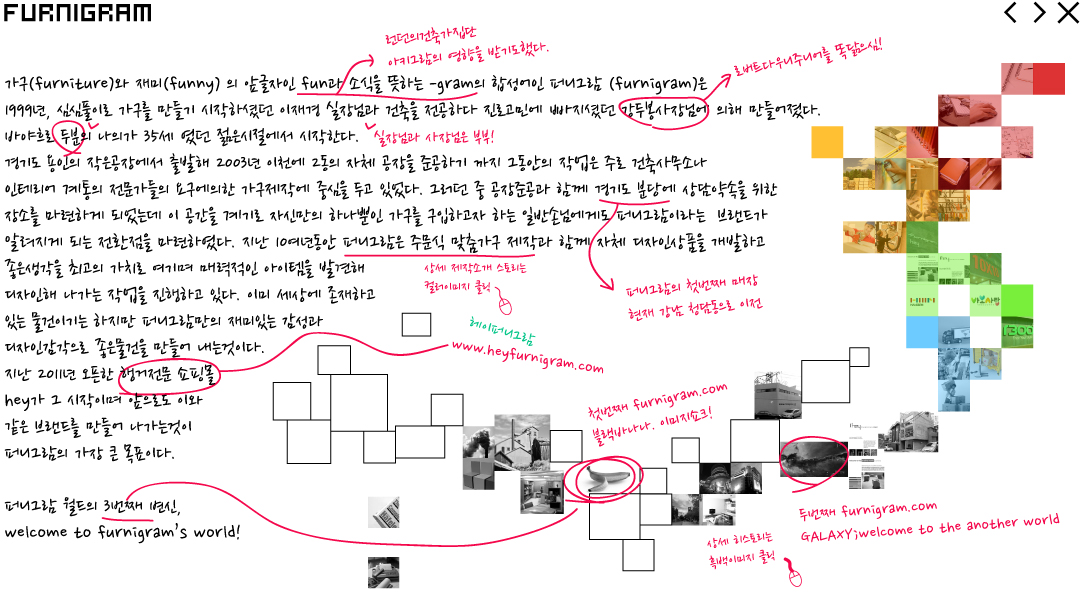 FURNIGRAM
런던의건축가집단
아키그람의 영향을 받기도했다.
로버트다우니주니어를 똑닮으심!
가구(furniture)와 재미(funny) 의 앞글자인 fun과 소식을 뜻하는 -gram의 합성어인 퍼니그람 (furnigram)은
1999년, 심심풀이로 가구를 만들기 시작하셨던 이재경 실장님과 건축을 전공하다 진로고민에 빠지셨던 강두봉사장님에 의해 만들어졌다.
바야흐로 두분의 나의가 35세 였던 젊은시절에서 시작한다.
실장님과 사장님은 부부!
경기도 용인의 작은공장에서 출발해 2003년 이천에 2동의 자체 공장을 준공하기 까지 그동안의 작업은 주로 건축사무소나
인테리어 계통의 전문가들의 요구에의한 가구제작에 중심을 두고 있었다. 그러던 중 공장준공과 함께 경기도 분당에 상담약속을 위한
장소를 마련하게 되었는데 이 공간을 계기로 자신만의 하나뿐인 가구를 구입하고자 하는 일반손님에게도 퍼니그람이라는 브랜드가
알려지게 되는 전환점을 마련하였다. 지난 10여년동안 퍼니그람은 주문식 맞춤가구 제작과 함께 자체 디자인상품을 개발하고
좋은생각을 최고의 가치로 여기며 매력적인 아이템을 발견해
디자인해 나가는 작업을 진행하고 있다. 이미 세상에 존재하고
있는 물건이기는 하지만 퍼니그람만의 재미있는 감성과
디자인감각으로 좋은물건을 만들어 내는것이다.
지난 2011년 오픈한 행거전문 쇼핑몰
hey가 그 시작이며 앞으로도 이와
같은 브랜드를 만들어 나가는것이
퍼니그람의 가장 큰 목표이다.
상세 제작소개 스토리는
컬러이미지 클릭
퍼니그람의 첫번째 매장
현재 강남 청담동으로 이전
헤이퍼니그람
www.heyfurnigram.com
첫번째 furnigram.com
블랙바나나. 이미지쇼크!
퍼니그람 월드의 3번째 변신,
welcome to furnigram's world!
두번째 furnigram.com
GALAXY;welcome to the another world
상세 히스토리는
흑백이미지 클릭
1300